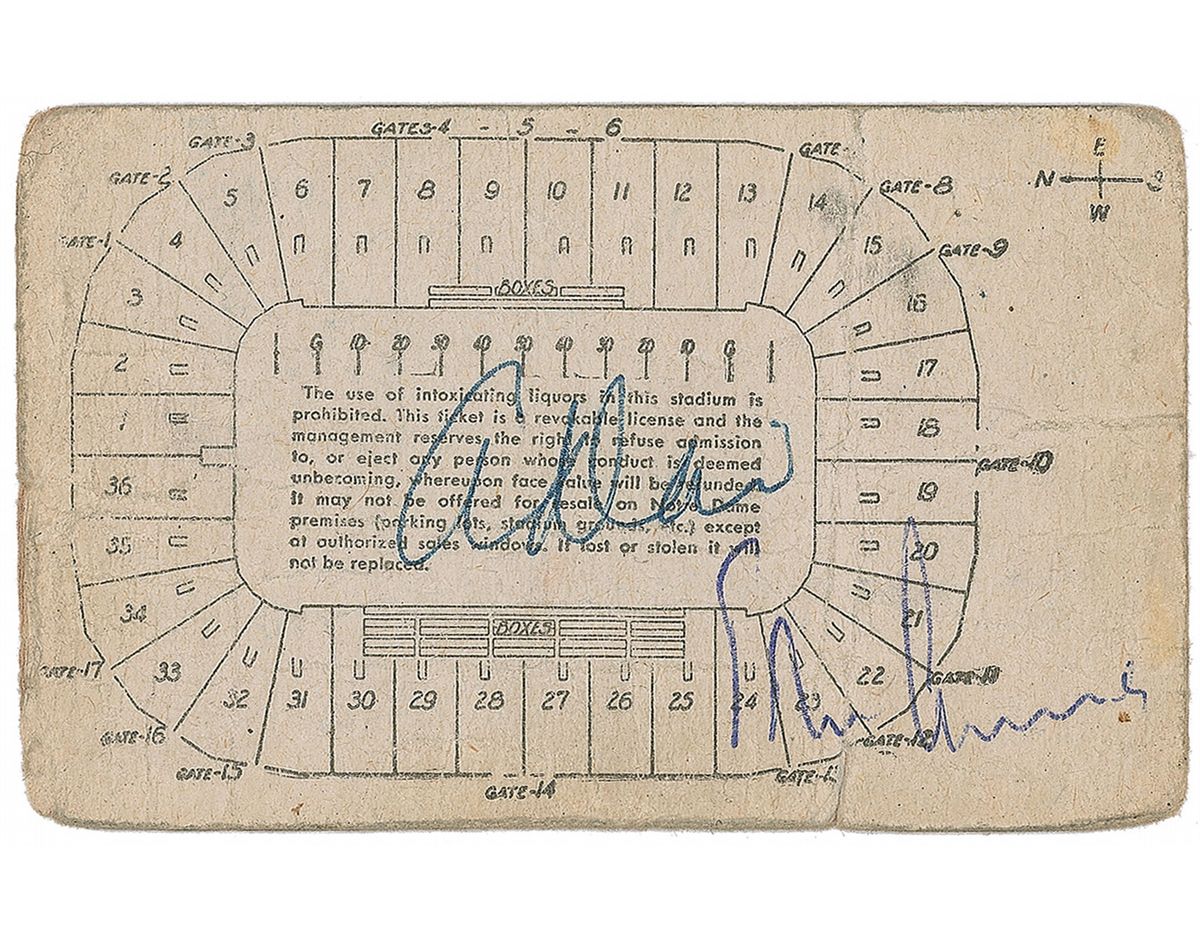 GATES-4 - 5 - 6
GATE-3
GATE-
GATE-2
GATE-8
E
N S
W
GATE-1
GATE-9
5 6 7 8 9 10 11 12 13 14
4 15
3 16
2 17
1 18
36 19
35 20
34 21
33 22
32 31 30 29 28 27 26 25 24 23
BOXES
G 10 20 30 40 50 40 30 20 10 G
The use of intoxicating liquors in this stadium is
prohibited. This ticket is a revokable license and the
management reserves the right to refuse admission
to, or eject any person whose conduct is deemed
unbecoming, whereupon face value will be refunded.
It may not be offered for resale on Notre Dame
premises (parking lots, stadium grounds, etc.) except
at authorized sales windows. If lost or stolen it will
not be replaced.
BOXES
GATE-10
GATE-17
GATE-11
GATE-16
GATE-12
GATE-15
GATE-14
GATE-13